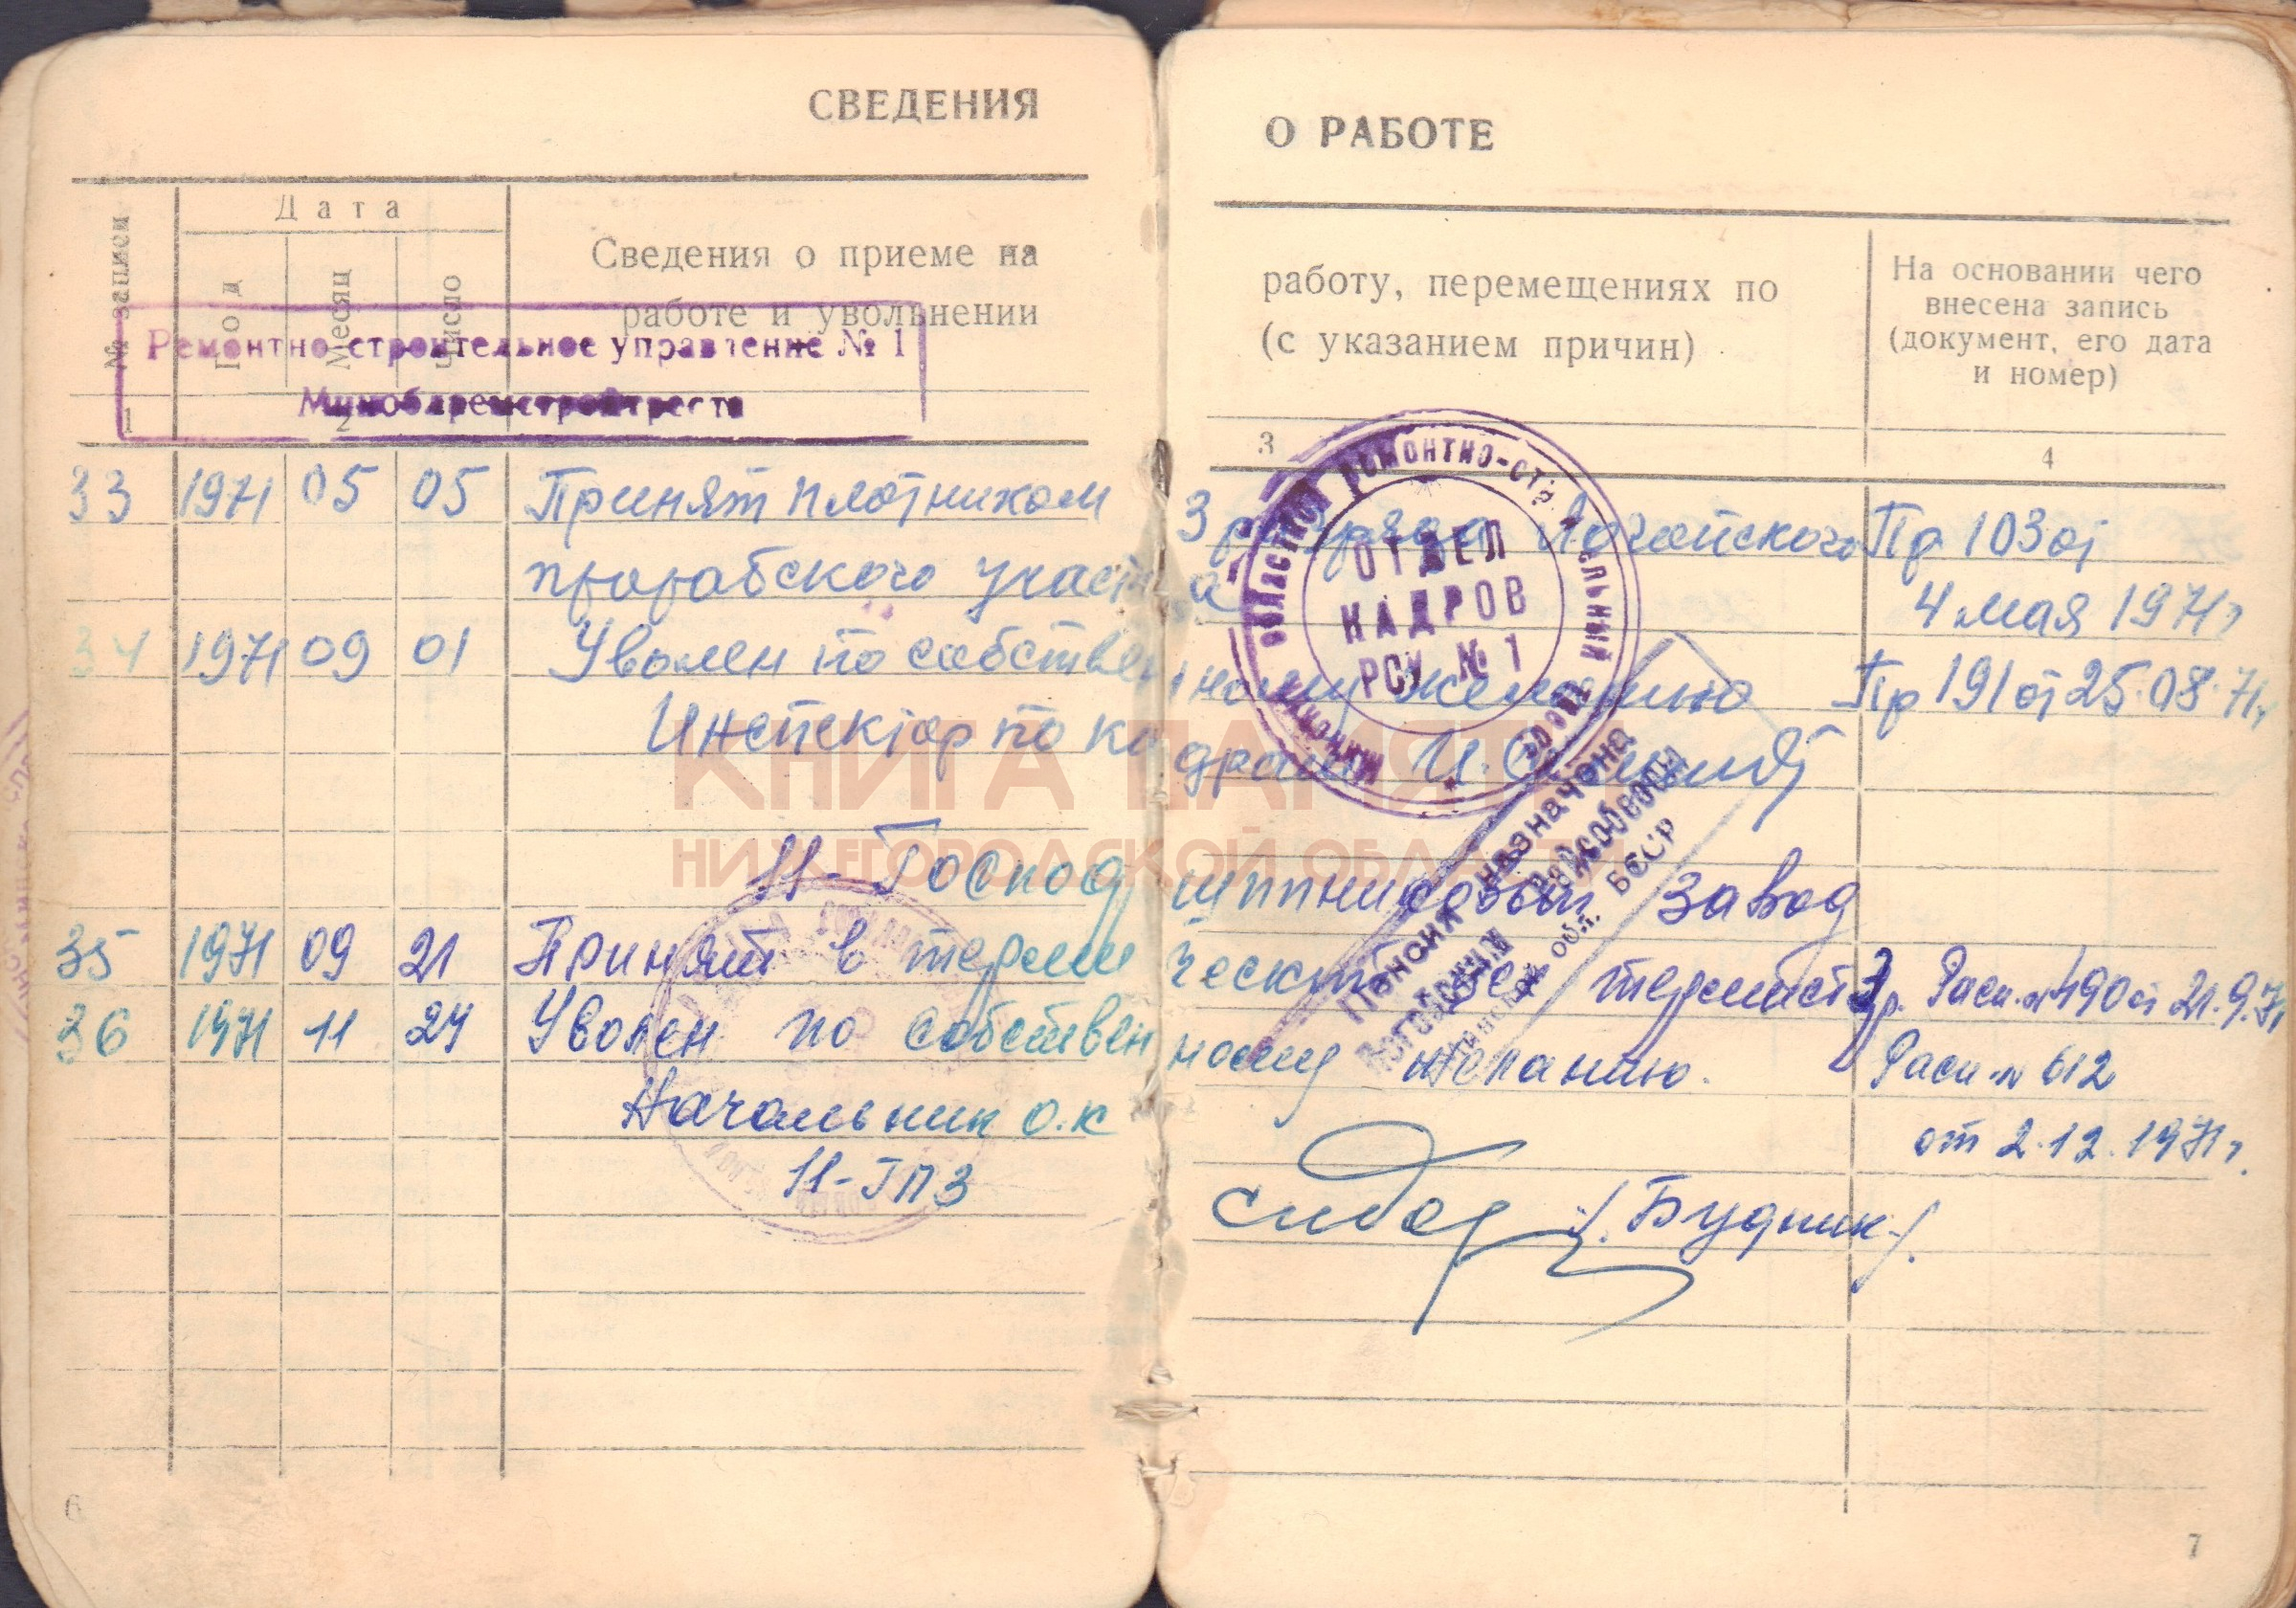 СВЕДЕНИЯ О РАБОТЕ
№ записи
Дата
Год
Месяц
Число
Сведения о приеме на работу, перемещениях по
работе и увольнении (с указанием причин)
На основании чего
внесена запись
(документ, его дата
и номер)
1 2 3 4
Ремонтно-строительное управление № 1
Миноблремстройтреста
33 1971 05 05 Принят плотником 3 разряда Логойского Пр 103 от
прорабского участка 4 мая 1971г
34 1971 09 01 Уволен по собственному желанию Пр 191 от 25.08.71г
Инспектор по кадрам И.
ОТДЕЛ
КАДРОВ
РСУ № 1
КНИГА ПАМЯТИ
НИЖЕГОРОДСКОЙ ОБЛАСТИ
Пенсия назначена
Логойским райсобесом
Минской обл. БССР
11-Господ шипниковый завод
35 1971 09 21 Принят в термический цех термист 3р. Расп. № 490 от 21.9.71
36 1971 11 24 Уволен по собственному желанию. Расп. № 612
Начальник о.к от 2.12.1971г.
11-ГПЗ /Будник/.
6
7